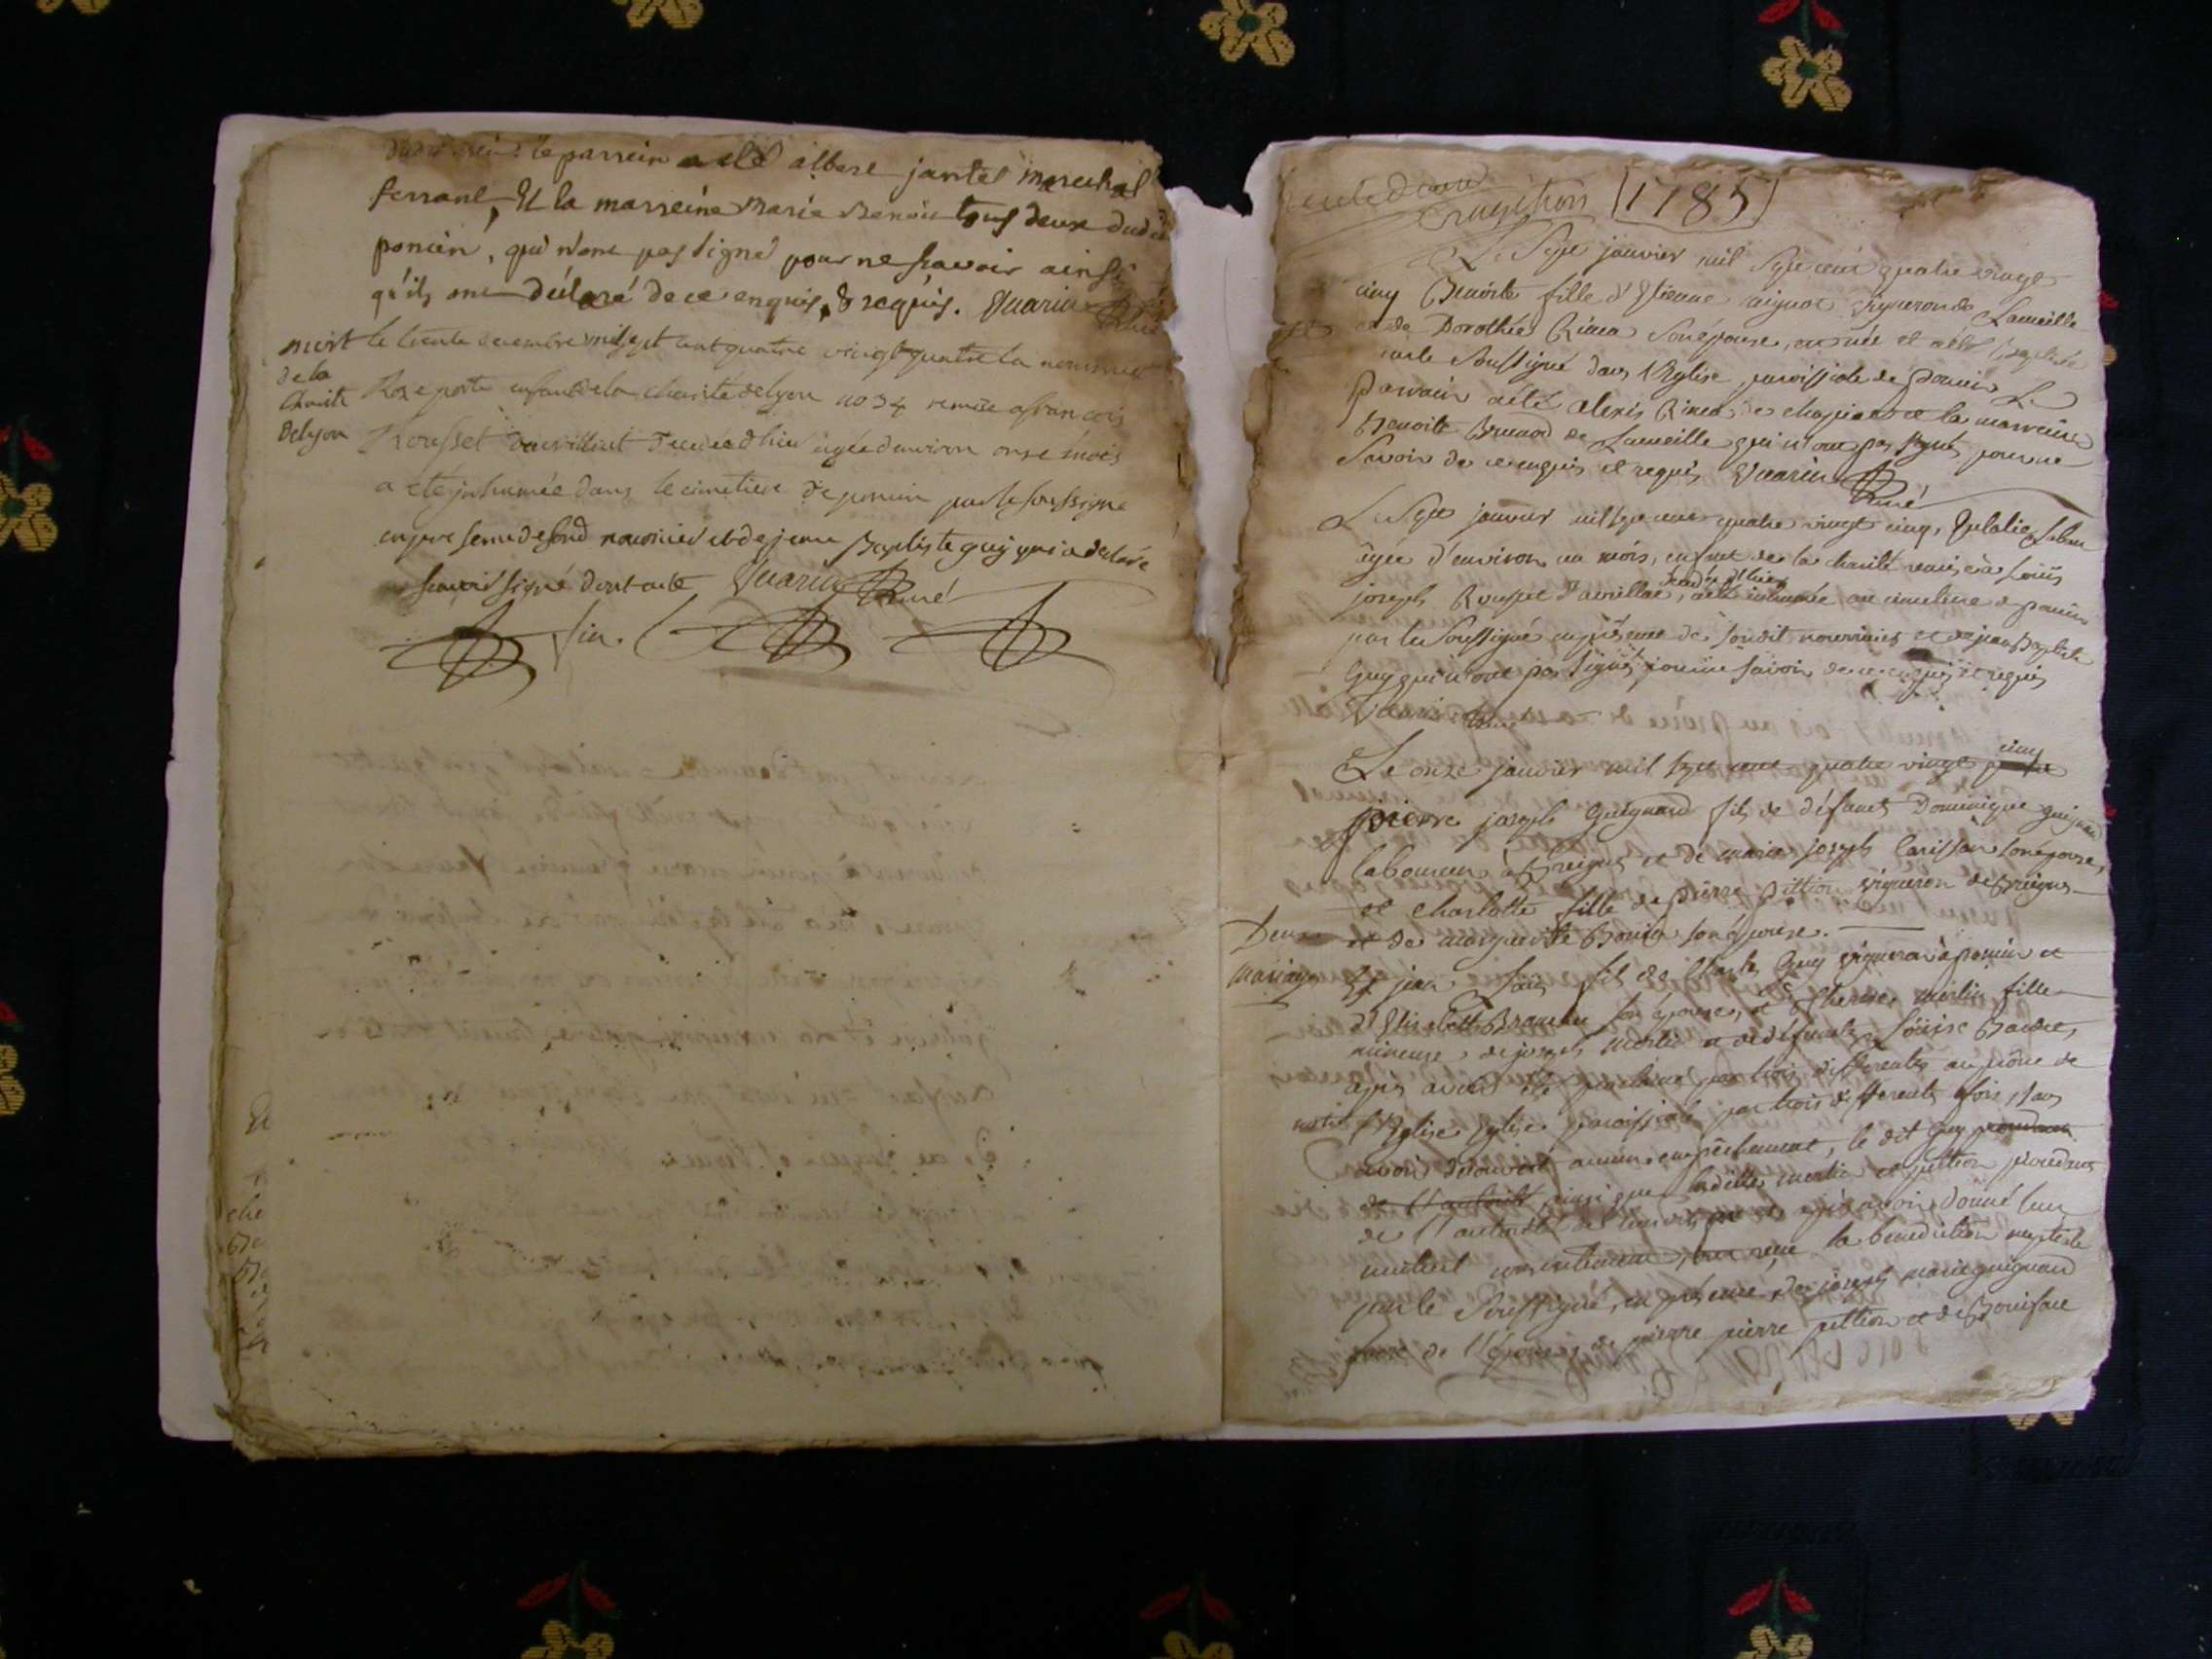 le parrein a été albere jantet marechal
ferrant, Et la marreine Marie Benoit tous deux dudit
poncin, qui n'ont pas signé pour ne scavoir ainsi
qu'ils ont déclaré de ce enquis, & requis. Vuarin Curé
mort
de la
Charité
de lyon
le trente decembre mil sept cent quatre vingt quatre la nommée
Roze porte enfant de la charité de lyon no 34 remise a francois
Rousset d'avrillat decedée d'hier agée d'environ onze mois
a été inhumée dans le cimetiere de poncin par le soussigné
en presence de son d nouricier et de jean Baptiste guy qui a declaré
scavoir signé dont acte Vuarin Curé
fin.
1785
Le Sept janvier mil sept cent quatre vingt
cinq Benoite fille d'Etienne vigneron de Lameille
et de Dorothée Rimea son épouse, est née et a été baptisée
par le soussigné dans l'Eglise paroissiale de poncin Le
parrain a été alexis Rimea de et la marreine
Benoite Brunod de Lameille qui n'ont pas signé pour ne
Savoir de ce enquis et requis Vuarin Curé
Le Sept janvier mil sept cent quatre vingt cinq, Eulalie
agée d'environ un mois, enfant de la charité remise à Loüis
joseph Rousset d'avrillat, decedée d'hier a été inhumée au cimetiere de poncin
par le soussigné en présence de son dit nourricier et de jean Baptiste
Guy qui n'ont pas signés pour ne savoir de ce enquis et requis
Vuarin Curé
Le onze janvier mil sept cent quatre vingt cinq
pierre joseph Guignard fils de défunct Dominique guignard
laboureur à et de marie joseph son épouse,
et Charlotte fille de pierre pittion vigneron de
Deux
mariages
et de marguerite Bonin son épouse.
Et jean Loüis fils de Charles Guy vigneron à poncin et
d'Elisabeth son épouse, et Therese merlin fille
mineure de joseph merlin et de défunte Loüise
après avoir été proclamé par trois differentes au prône de
notre Eglise paroissiale par trois differentes fois, sans
avoir découvert aucun empêchement, le dit Guy
de l'autorité ainsi que merlin et pittion procedans
de l'autorité de leurs après avoir donné leur
mutuel consentement, ont reçu la benediction nuptiale
par le Soussigné, en présence de joseph marie guignard
frere de l'époux, de pierre pittion et de Boniface